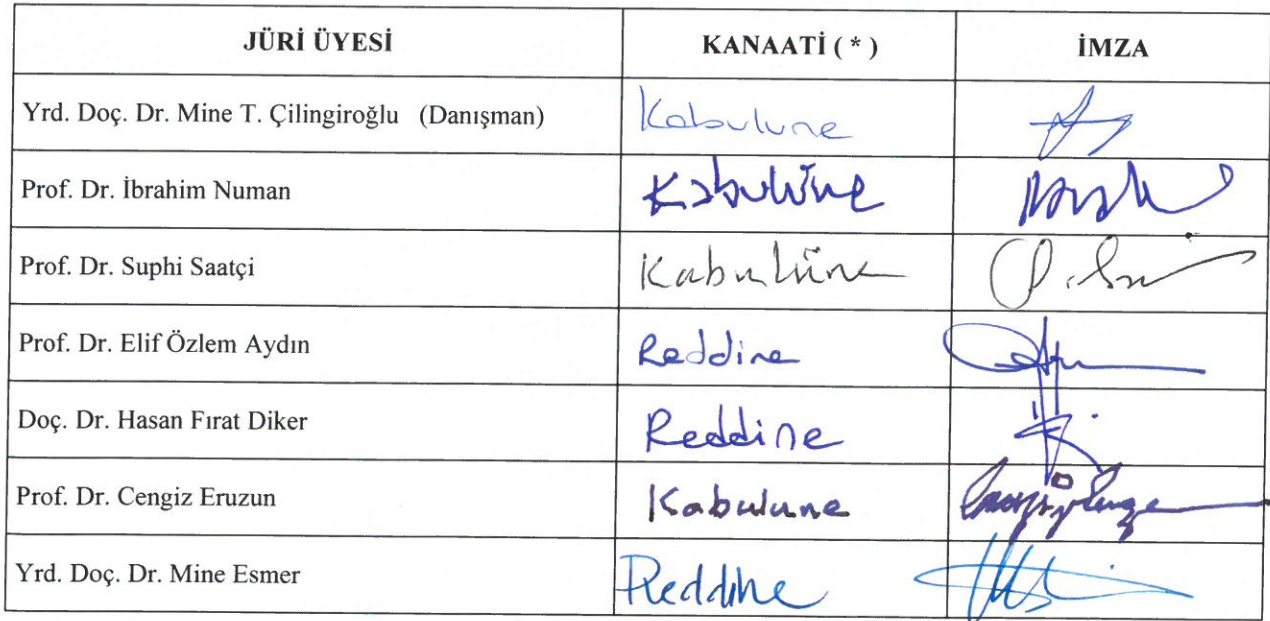 JÜRİ ÜYESİ KANAATİ ( * ) İMZA
Yrd. Doç. Dr. Mine T. Çilingiroğlu (Danışman) Kabulune
Prof. Dr. İbrahim Numan Kabulüne
Prof. Dr. Suphi Saatçi Kabulüne
Prof. Dr. Elif Özlem Aydın Reddine
Doç. Dr. Hasan Fırat Diker Reddine
Prof. Dr. Cengiz Eruzun Kabulune
Yrd. Doç. Dr. Mine Esmer Reddine